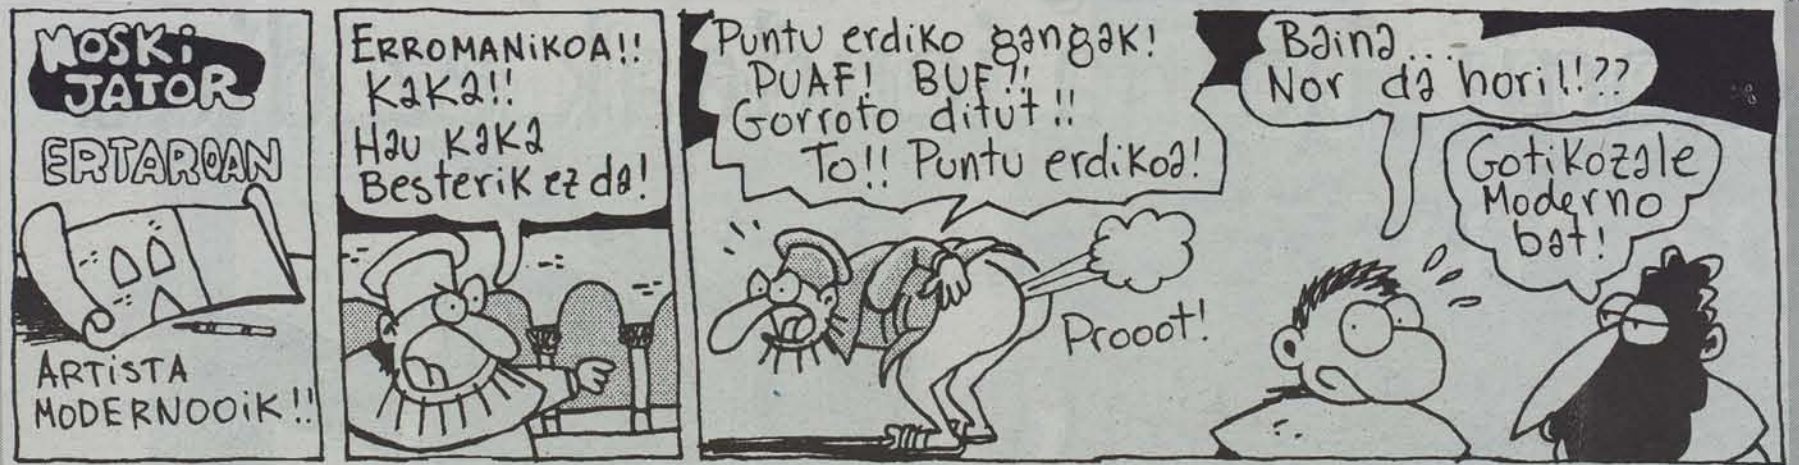 MOSKI
JATOR
ERTAROAN
ARTISTA
MODERNOOIK!!
ERROMANIKOA!!
KaKa!!
Hau KaKa
BesteriK ez da!
Puntu erdiko gangak!
PUAF! BUF!!
Gorroto ditut!!
To!! Puntu erdikoa!
Prooot!
Baina...
Nor da hori!!??
Gotikozale
Moderno
bat!